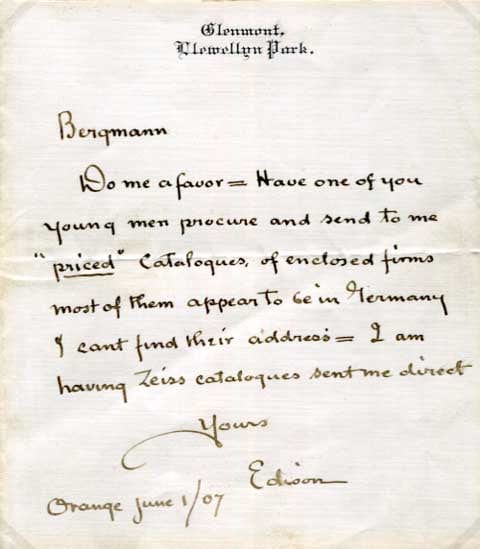 Glenmont,
Llewellyn Park.
Bergmann
Do me a favor = Have one of you
young men procure and send to me
"priced" Catalogues, of enclosed firms
most of them appear to be in Germany
I cant find their address = I am
having Zeiss catalogues sent me direct
Yours
Edison
Orange June 1/07